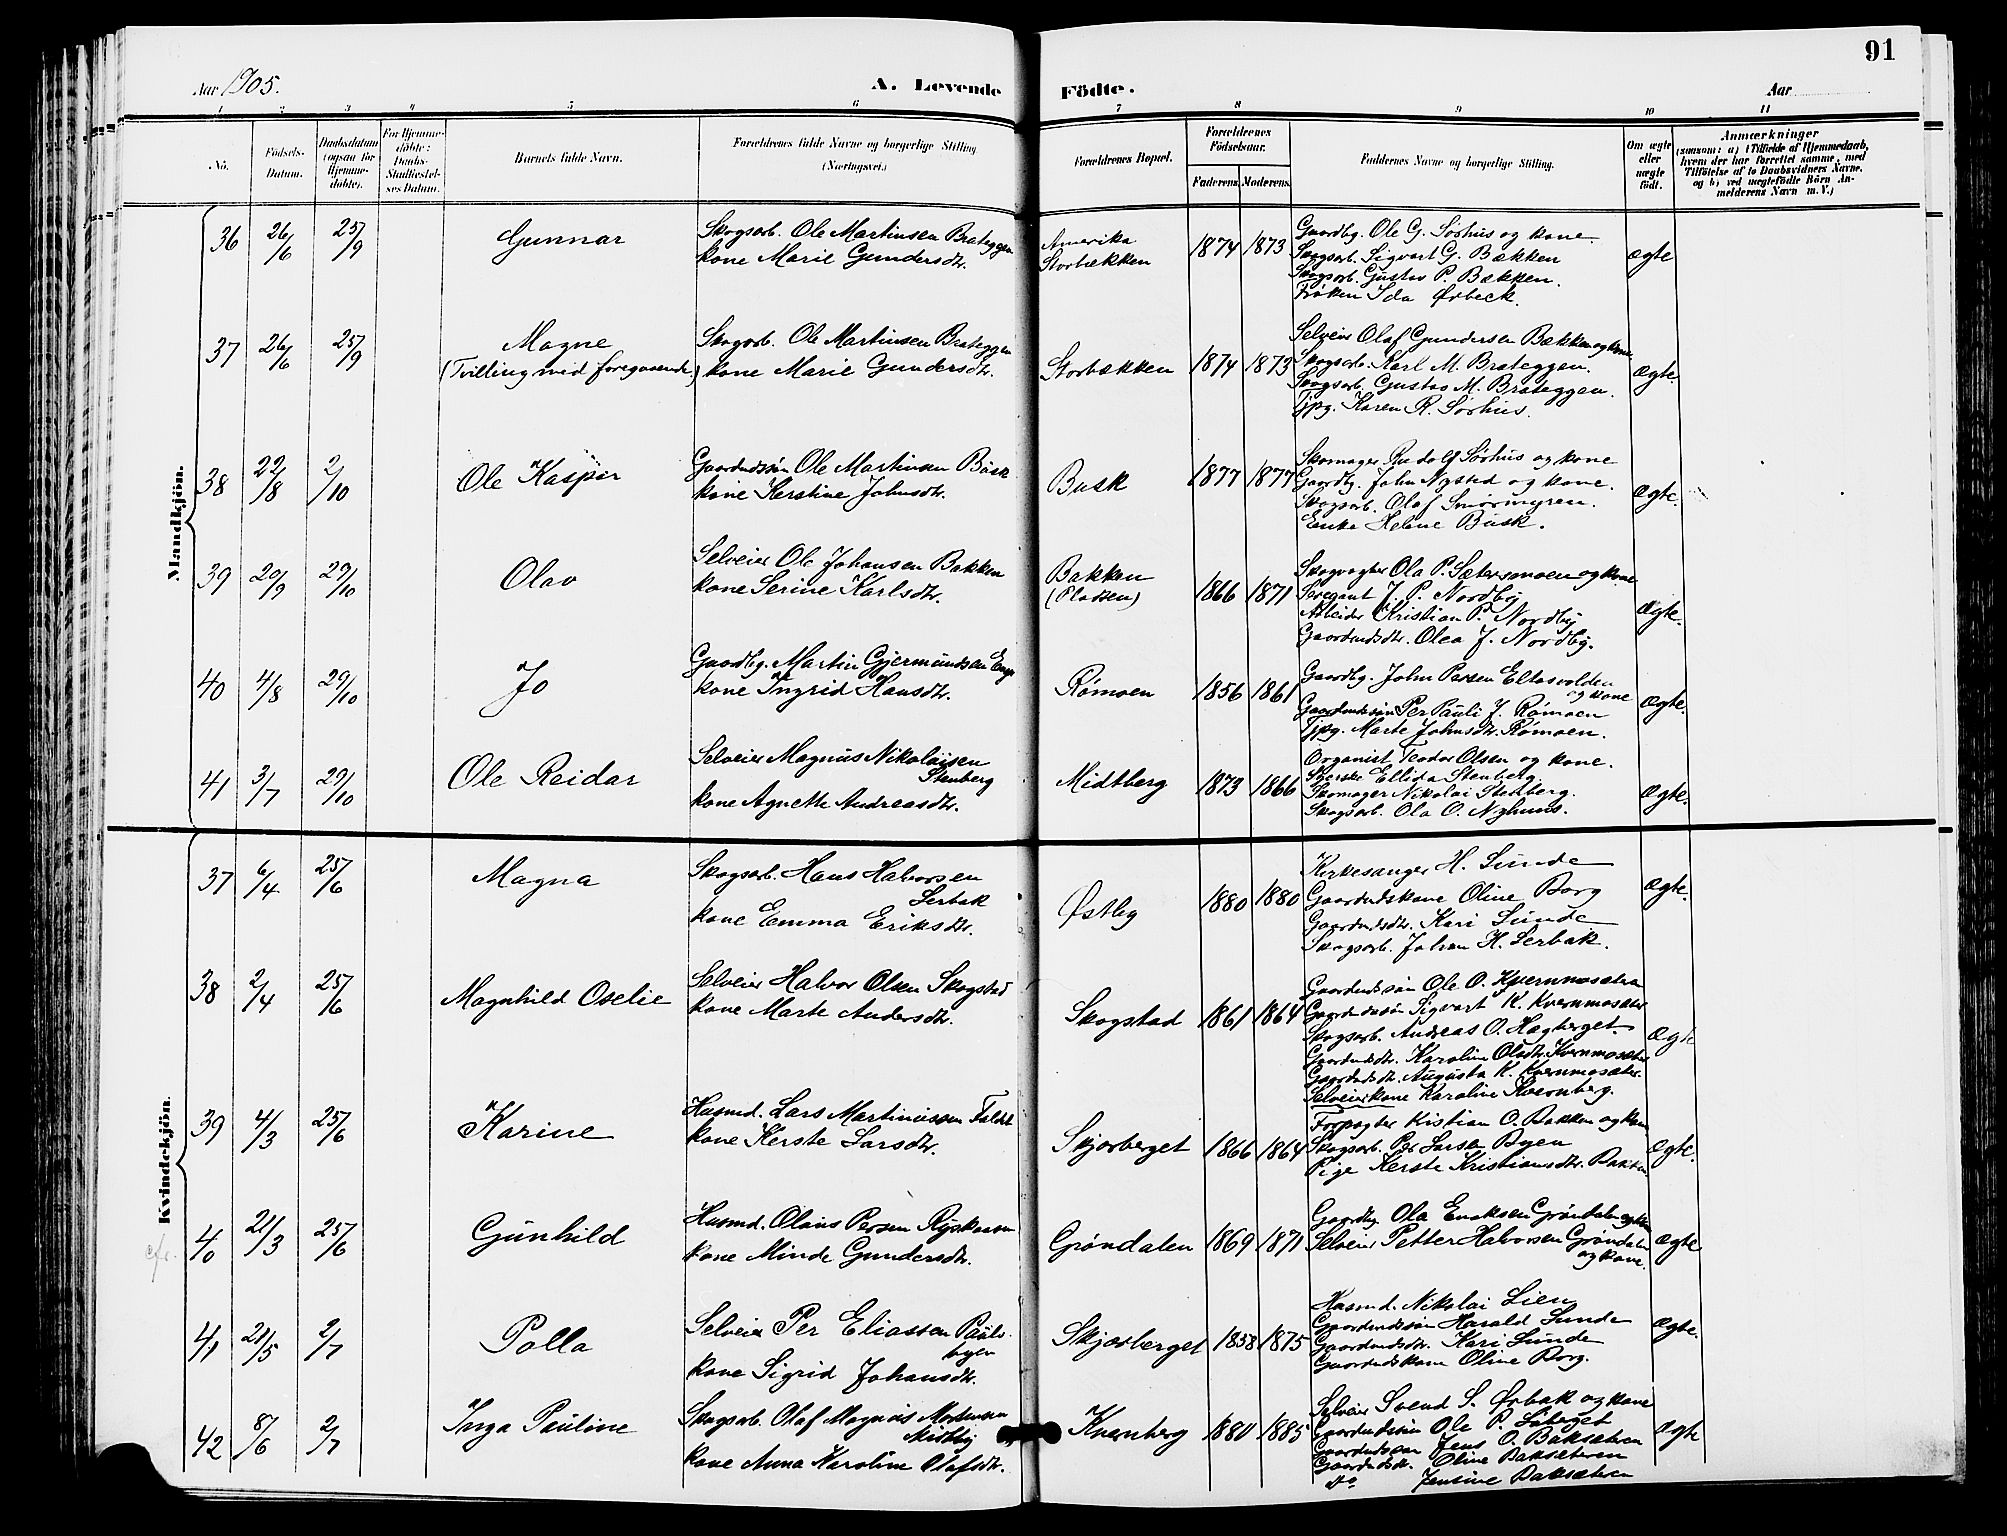 91
Aar 1905.
A. Levende
Födte.
Aar
1 2 3 4 5 6 7 8 9 10 11
No.
Födsels-Datum.
Daabsdatum (ogsaa for Hjemme-döbte).
For Hjemme-döbte: Daabs-Stadfæstel-ses Datum.
Barnets fulde Navn.
Forældrenes fulde Navne og borgerlige Stilling (Næringsvei.)
Forældrenes Bopæl.
Forældrenes Födselsaar.
Faderens. Moderens.
Faddernes Navne og borgerlige Stilling.
Om ægte eller uægte födt.
Anmærkninger
(saasom: a) i Tilfælde af Hjemmedaab, hvem der har forrettet samme, med Tilföielse af to Daabsvidners Navne, og b) ved uægtefödte Börn An-melderens Navn m. V.)
Mandkjön.
36 26/6 25/9 Gunnar
Skogsarb. Ole Martinsen Brateggen
kone Marie Gundersdtr.
Amerika
Storbækken
1874 1873
Gaardbg. Ole G. Sørhus og kone.
Skogsarb. Sigvart G. Bækken
Skogsarb. Gustav P. Bækken.
Frøken Ida Ørbeck.
ægte
37 26/6 25/9 Magne
(Tvilling med foregaaende.)
Skogarb. Ole Martinsen Brateggen
kone Marie Gundersdtr.
Storbækken
1874 1873
Selveier Olaf Gundersen Bækken og kone
Skogsarb. Karl M. Brateggen.
Skogsarb. Gustav M. Brateggen.
Tjpg. Karen R. Sørhus.
ægte.
38 22/8 2/10 Ole Kasper
Gaardmdssøn Ole Martinsen Busk
kone Kerstine Johnsdtr.
Busk
1877 1877
Skomager Rudolf Sørhus og kone
Gaardbg. John Nysted og kone.
Skogsarb. Olaf Smørmyren.
Enke Helene Busk.
ægte.
39 20/9 29/10 Olav
Selveier Ole Johansen Bakken
kone Serine Karlsdtr.
Bakken
(Pladsen)
1866 1871
Skogvogter Ola P. Sætersmoen og kone
Sergeant J. P. Nordby
Arbeider Kristian P. Nordby
Gaardmdsdtr. Olea J. Nordby.
Ægte.
40 4/8 29/10 Jo
Gaardbg. Martin Gjermundsen Enge
kone Ingrid Hansdtr.
Rømoen
1856 1861
Gaardbg. John Persen Eltasvolden
og kone
Gaardmdssøn Per Pauli J. Rømoen
Tjpg. Marte Johnsdtr. Rømoen.
ægte.
41 3/7 29/10 Ole Reidar
Selveier Magnus Nikolaisen
Stenberg
kone Agnethe Andreasdtr.
Midtberg
1873 1866
Organist Teodor Olsen og kone.
Ellida Stenberg
Skomager Nikolai Stenberg.
Skogsarb. Ola O. Nyhuus.
ægte.
Kvindekjön.
37 6/4 25/6 Magna
Skogsarb. Hans Halvorsen
Lerbak
kone Emma Eriksdtr.
Østby
1880 1880
Kirkesanger H. Sunde
Gaardmdskone Oline Borg
Gaardmdsdtr. Kari Sunde
Skogsarb. Johan H. Lerbak.
ægte.
38 2/4 25/6 Magnhild Oselie
Selveier Halvor Olsen Skogstad
kone Marte Andersdtr.
Skogstad
1861 1864
Gaardmdssøn Ole O. Kvernmosæter
Gaardmdssøn Sigvart K. Kvernmosæter
Skogsarb. Andreas O. Hagberget.
Gaardmdsdtr. Karoline Olsdtr. Kvernmosæter
Gaardmdsdtr. Augusta K. Kvernmosæter.
Selveierkone Karoline Kvernberg.
ægte
39 4/3 25/6 Karine
Husmd. Lars Martinussen Faldet
kone Kerste Larsdtr.
Skjærberget
1866 1864
Forpagter Kristian O. Bakken og kone
Skogsarb. Per Larsen Byen
Pige Kerste Kristiansdtr. Bakken
ægte.
cfr.
40 21/3 25/6 Gunhild
Husmd. Olaus Persen
kone Minde Gundersdtr.
Grøndalen
1869 1871
Gaardbg Ola Enoksen Grøndalen og kone
Selveier Petter Halvorsen Grøndalen
og kone.
ægte
41 21/5 2/7 Polla
Selveier Per Eliassen Pauls-
byen
kone Sigrid Johansdtr.
Skjærberget
1858 1875
Husmd. Nikolai Lien
Gaardmdssøn Harald Sunde
Gaardmdsdtr. Kari Sunde
Gaardmdskone Oline Borg.
ægte.
42 8/6 2/7 Inga Pauline
Skogsarb. Olaf Magnus Mortensen
kone Anna Karoline Olafsdtr.
Kvernberg
1880 1885
Selveier Svend S. Ørbak og kone
Gaardmdssøn Ole P. Liberget
Gaardmdssøn Jens O. Baksæteren
Gaardmdsdtr. Oline Baksæteren
do Jensine Baksæteren
ægte